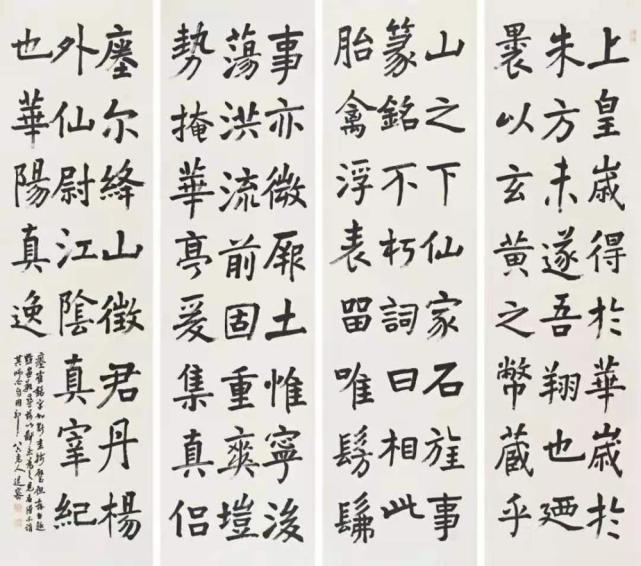 上皇歲得於華歲於
朱方未遂吾翔也迺
裹以玄黃之幣藏乎
山之下仙家石旌事
篆銘不朽詞曰相此
胎禽浮表留唯髣髴
事亦微厥土惟寧後
蕩洪流前固重爽塏
勢掩華亭爰集真侶
瘞尔絳山徵君丹楊
外仙尉江陰真宰紀
也華陽真逸